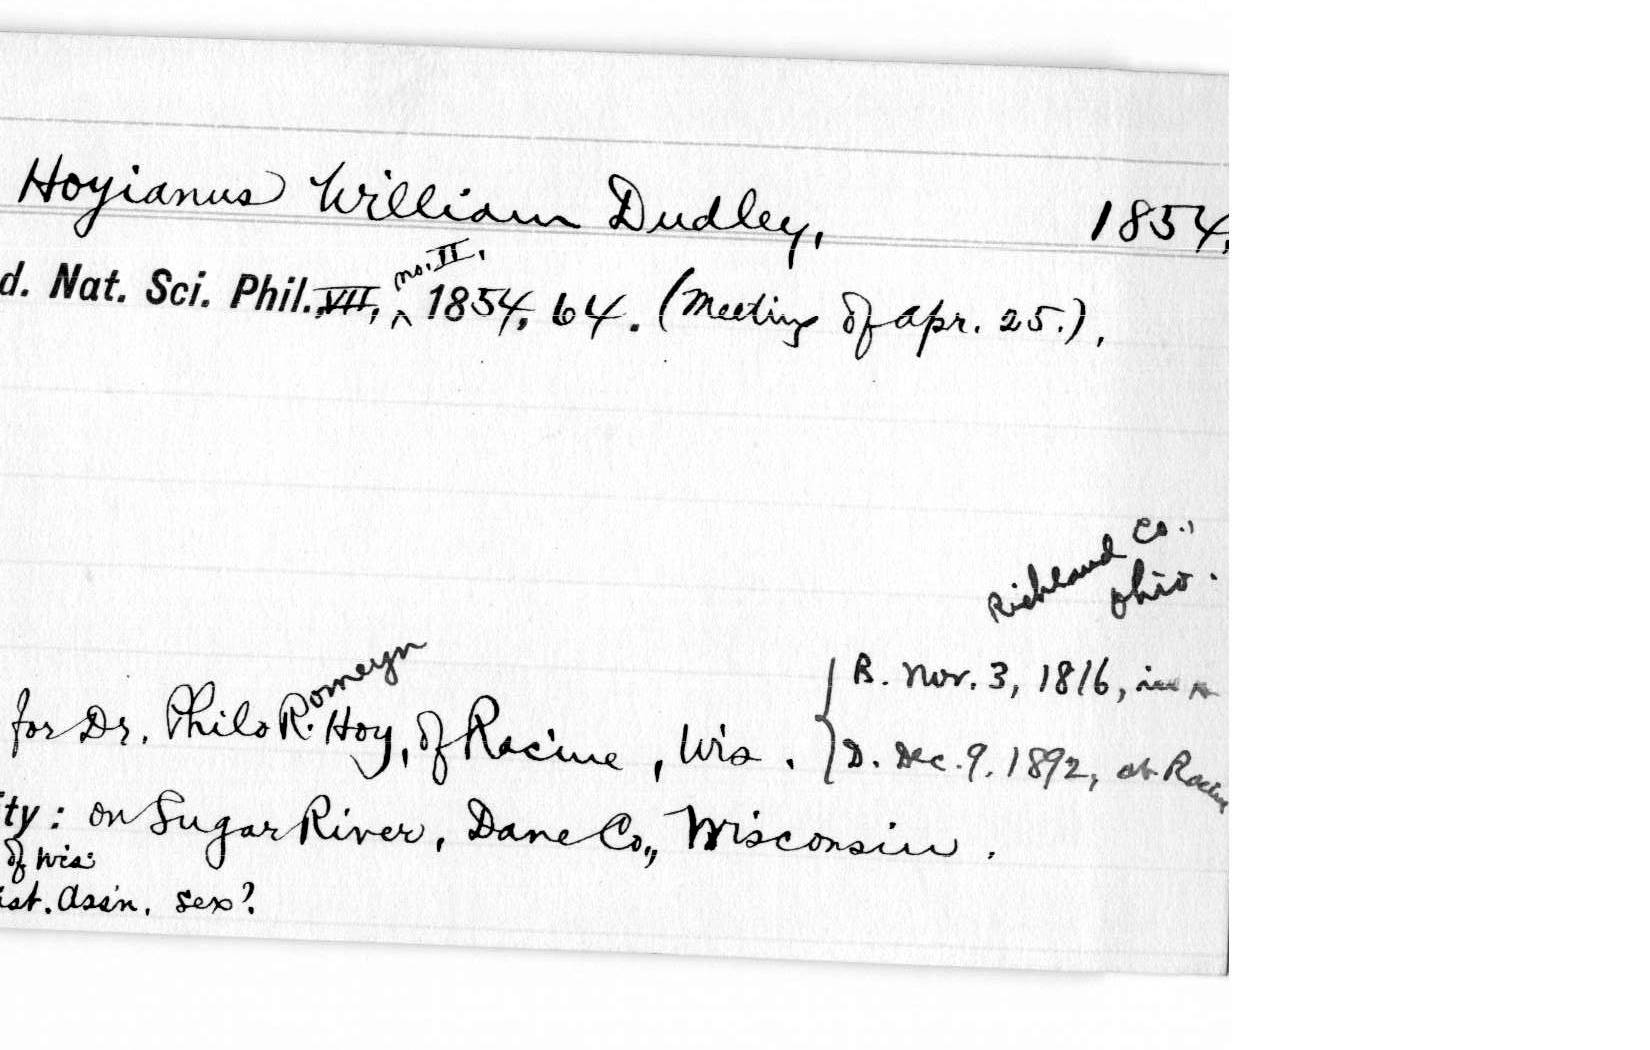 Hoyianus William Dudley, 1854,
d. Nat. Sci. Phil., VII, no. II, 1854, 64. (Meeting of Apr. 25.),
Richland Co.,
Ohio.
B. Nov. 3, 1816, in
for Dr. Philo R. omeyn Hoy, of Racine, Wis.
D. Dec. 9, 1892, at Racine
ty: on Sugar River, Dane Co., Wisconsin.
of Wis.
ist. Assn. sex?